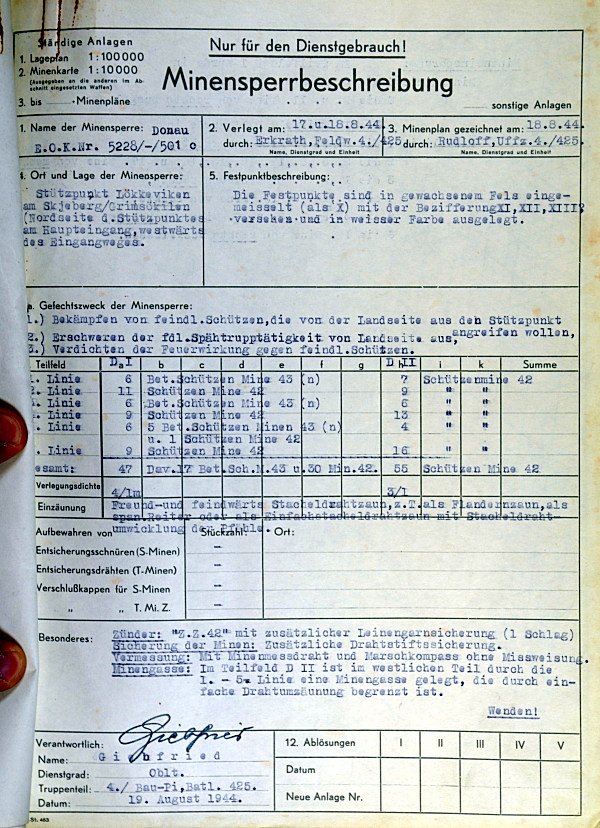 Ständige Anlagen
Nur für den Dienstgebrauch!
1. Lageplan 1:100000
2. Minenkarte 1:10000
(Ausgegeben an die anderen im Ab-
schnitt eingesetzten Waffen)
Minensperrbeschreibung
3. bis Minenpläne
sonstige Anlagen
1. Name der Minensperre: Donau
E.O.K.Nr. 5228/-/501 c
2. Verlegt am: 17.u.18.8.44
durch: Erkrath,Feldw.4./425
Name, Dienstgrad und Einheit
3. Minenplan gezeichnet am: 18.8.44
durch: Rudloff,Uffz.4./425.
Name, Dienstgrad und Einheit
4. Ort und Lage der Minensperre:
Stützpunkt Lökkeviken
am Skjeberg/Grimsökilen
(Nordseite d.Stützpunktes
am Haupteingang,westwärts
des Eingangweges.
5. Festpunktbeschreibung:
Die Festpunkte sind in gewachsenem Fels einge-
meisselt (als X) mit der Bezifferung XI,XII,XIII
versehen und in weisser Farbe ausgelegt.
Gefechtszweck der Minensperre:
1.) Bekämpfen von feindl.Schützen,die von der Landseite aus den Stützpunkt
angreifen wollen,
2.) Erschweren der fdl.Spähtrupptätigkeit von Landseite aus,
3.) Verdichten der Feuerwirkung gegen feindl.Schützen.
Teilfeld D a I b c d e f g D h II i k Summe
. Linie 6 Bet.Schützen Mine 43 (n) 7 Schützenmine 42
. Linie 11 Schützen Mine 42 9 " "
. Linie 6 Bet.Schützen Mine 43 (n) 6 " "
. Linie 9 Schützen Mine 42 13 " "
. Linie 6 5 Bet.Schützen Minen 43 (n) 4 " "
u. 1 Schützen Mine 42
. Linie 9 Schützen Mine 42 16 " "
esamt: 47 Dav.17 Bet.Sch.M.43 u.30 Min.42. 55 Schützen Mine 42
Verlegungsdichte 4/1m 3/1
Einzäunung Freund-und feindwärts Stacheldrahtzaun,z.T.als Flandernzaun,als
span.Reiter oder als Einfachstacheldrahtzaun mit Stacheldraht-
umwicklung der Pfähle.
Aufbewahren von Stückzahl: Ort:
Entsicherungsschnüren (S-Minen) —
Entsicherungsdrähten (T-Minen) —
Verschlußkappen für S-Minen —
„ „ T. Mi. Z. —
Besonderes: Zünder: "Z.Z.42" mit zusätzlicher Leinengarnsicherung (1 Schlag)
Sicherung der Minen: Zusätzliche Drahtstiftssicherung.
Vermessung: Mit Minenmessdraht und Marschkompass ohne Missweisung.
Minengasse: Im Teilfeld D II ist im westlichen Teil durch die
1. - 5. Linie eine Minengasse gelegt, die durch ein-
fache Drahtumzäunung begrenzt ist.
Wenden!
Verantwortlich:
Name:
Dienstgrad: Oblt.
Truppenteil: 4./ Bau-Pi,Batl. 425.
Datum: 19. August 1944.
12. Ablösungen I II III IV V
Datum
Neue Anlage Nr.